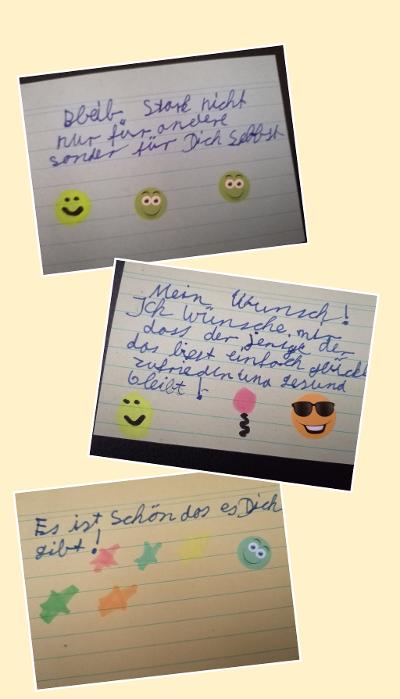 Bleib Stark nicht
nur für andere
sonder für Dich Selbst
Mein Wunsch!
Ich wünsche mir
dass der jenige der
das liest einfach glückl
zufrieden und gesund
bleibt!
Es ist Schön das es Dich
gibt!